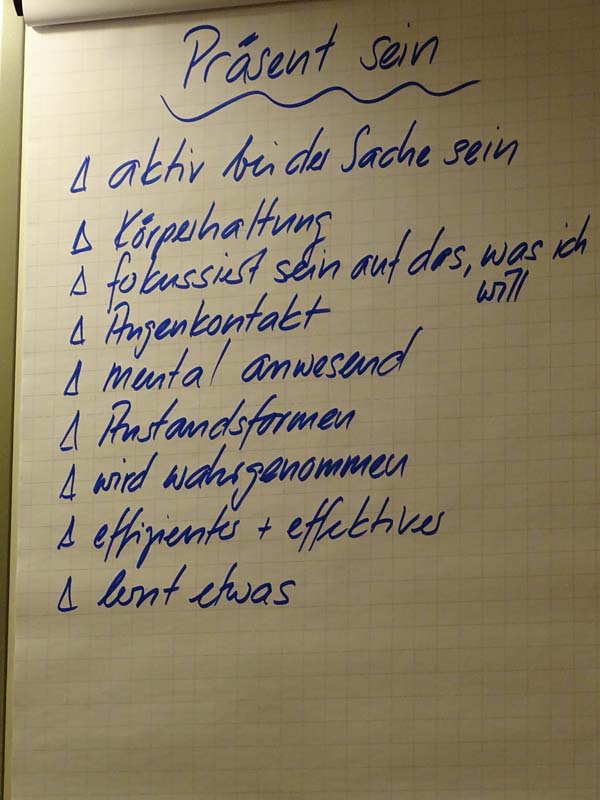 Präsent sein
Δ aktiv bei der Sache sein
Δ Körperhaltung
Δ fokussiert sein auf das, was ich
will
Δ Augenkontakt
Δ mental anwesend
Δ Anstandsformen
Δ wird wahrgenommen
Δ effizienter + effektiver
Δ lernt etwas